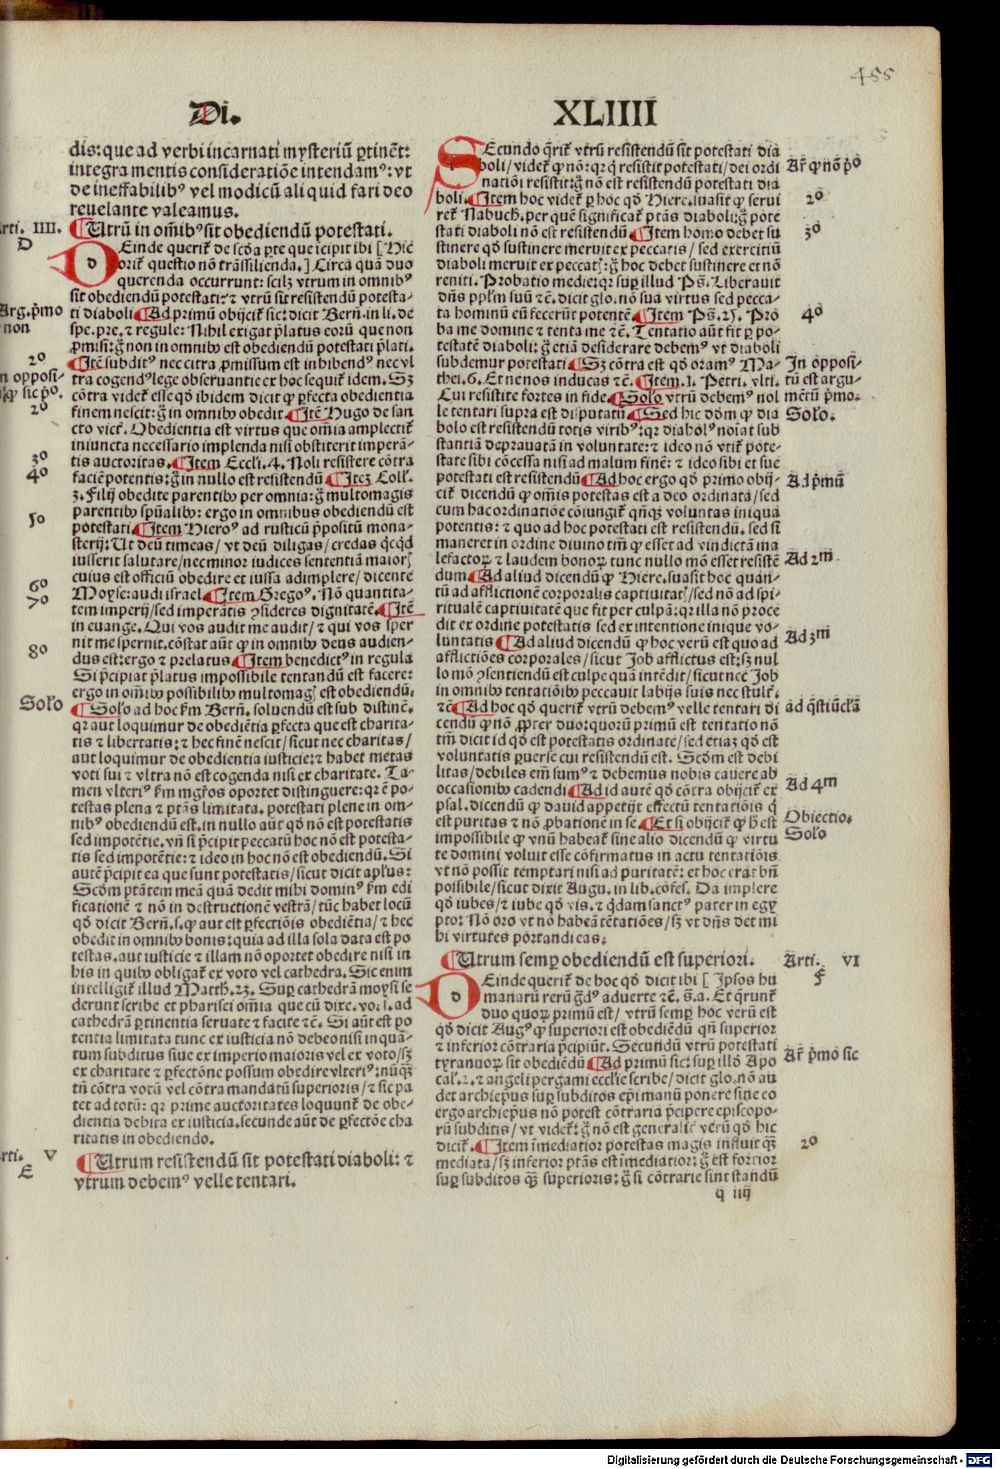 455
Di. XLIIII
dis: que ad verbi incarnati mysteriū ꝑtinēt:
integra mentis consideratiōe intendamꝰ: vt
de ineffabilibꝰ vel modicū aliquid fari deo
reuelante valeamus.
rti. IIII.
D
¶Utrū in oīībꝰ sit obediendū potestati.
Deinde querit̃ de scd̃a ꝑte que īcipit ibi [Hic
orit̃ questio nō trāssilienda.] Circa quā duo
querenda occurrunt: scilꝫ vtrum in omnibꝰ
sit obediendū potestati: ⁊ vtrū sit resistendū potesta-
ti diaboli ¶Ad primū obijcit̃ sic: dicit Bern̄. in li. de
Arg. ṗmo
non
spe. pre. ⁊ regule: Nihil exigat p̄latus eorū que non
ꝓmisi: g̃ non in omnibꝰ est obediendū potestati p̄lati.
2º
¶Itē subditꝰ nec citra ꝓmissum est inhibendꝰ nec vl
tra cogendꝰ lege obseruantie ex hoc sequit̃ idem. Sꝫ
n opposi-
cōtra videt̃ esse qđ ibidem dicit ꝙ ꝑfecta obedientia
2º
finem nescit: g̃ in omnibꝰ obedit ¶Itē Hugo de san
cto vict̃. Obedientia est virtus que om̄ia amplectit̃
iniuncta necessario implenda nisi obstiterit imperā-
3º
tis auctoritas. ¶Item Eccli. 4. Noli resistere cōtra
4º
faciē potentis: g̃ in nullo est resistendū ¶Iteꝫ Coll̃.
3. Filij obedite parentibꝰ per omnia: g̃ multomagis
parentibꝰ spūalibꝰ: ergo in omnibus obediendū est
5º
potestati ¶Item Hieroꝰ ad rusticū ꝓpositū mona-
sterij: Ut deū timeas/ vt deū diligas/ credas qͥcqͥd
iusserit salutare/ nec minor iudices sententiā maioꝝ
cuius est officiū obedire et iussa adimplere/ dicente
6º
Moyse: audi israel ¶Item Gregoꝰ. Nō quantita-
7º
tem imperij/ sed imperātis ꝯsideres dignitatē. ¶Itē
in euange. Qui vos audit me audit/ ⁊ qui vos sper
nit me spernit. cōstat aūt ꝙ in omnibꝰ deus audien-
8º
dus est: ergo ⁊ prelatus ¶Item benedictꝰ in regula
Si p̄cipiat p̄latus impossibile tentandū est facere:
ergo in om̄ibꝰ possibilibꝰ multomagꝭ est obediendū.
Solꝰo
¶Solꝰo ad hoc ẜm Bern̄. soluendū est sub distinc̄.
qꝛ aut loquimur de obediētia ꝑfecta que est charita-
tis ⁊ libertatis: ⁊ hec finē nescit/ sicut nec charitas/
aut loquimur de obedientia iusticie: ⁊ habet metas
voti sui ⁊ vltra nō est cogenda nisi ex charitate. Ta-
men vlteriꝰ ẜm mgr̄os oportet distinguere: qꝛ ē po-
testas plena ⁊ ptās limitata. potestati plene in om-
nibꝰ obediendū est. in nullo aūt qđ nō est potestatis
sed impotētie. vn̄ si p̄cipit peccatū hoc nō est potesta-
tis sed impotētie: ⁊ ideo in hoc nō est obediendū. Si
autē p̄cipit ea que sunt potestatis/ sicut dicit apl̄us:
Scđm ptātem meā quā dedit mihi dominꝰ ẜm edi
ficationē ⁊ nō in destructionē vestrā/ tūc habet locū
qđ dicit Bern̄. s. ꝙ aut est ꝑfectiōis obediētia/ ⁊ hec
obedit in omnibꝰ bonis: quia ad illa sola data est po
testas. aut iusticie ⁊ illam nō oportet obedire nisi in
his in quibꝰ obligat̃ ex voto vel cathedra. Sic enim
intelligit̃ illud Matth. 23. Suꝑ cathedrā moysi se
derunt scribe et pharisei om̄ia que cū dixe. vo: s. ad
cathedrā ꝑtinentia seruate ⁊ facite ⁊c̄. Si aūt est po
tentia limitata tunc ex iusticia nō debeo nisi inquā-
tum subditus siue ex imperio maioris vel ex voto/ sꝫ
ex charitate ⁊ ꝑfectōne possum obedire vlteriꝰ: nūꝙ̄
tn̄ cōtra votū vel cōtra mandatū superioris/ ⁊ sic pa
tet ad totū: qꝛ prime auctoritates loquunt̃ de obe-
dientia debita ex iusticia. secunde aūt de ꝑfectōe cha
ritatis in obediendo.
rti. V
E
¶Utrum resistendū sit potestati diaboli: ⁊
vtrum debemꝰ velle tentari.
SEcundo q̄rit̃ vtrū resistendū sit potestati dia
boli/ videt̃ ꝙ nō: qꝛ qͥ resistit potestati/ dei ordi
natiōi resistit: g̃ nō est resistendū potestati dia
Ar̄ ꝙ nō p̊º
boli. ¶Item hoc videt̃ ꝑ hoc qđ Hiere. suasit ꝙ serui
2º
ret̃ Nabuch. per quē significat̃ ptās diaboli: g̃ pote
stati diaboli nō est resistendū ¶Item homo debet su
3º
stinere qđ sustinere meruit ex peccatis/ sed exercitiū
diaboli meruit ex peccatꝭ: g̃ hoc debet sustinere et nō
reniti. Probatio medie: qꝛ suꝑ illud Ps̄. Liberauit
dn̄s pplm̄ suū ⁊c̄. dicit glo. nō sua virtus sed pecca-
ta hominū eū fecerūt potentē. ¶Item Ps̄. 25. Pro
4º
ba me domine ⁊ tenta me ⁊c̄. Tentatio aūt fit ꝑ po-
testatē diaboli: g̃ etiā desiderare debemꝰ vt diaboli
subdemur potestati ¶Sꝫ cōtra est qđ oramꝰ Ma-
In opposi-
thei. 6. Et ne nos inducas ⁊c̄. ¶Item. 1. Petri. vlti.
tū est argu-
Cui resistite fortes in fide. ¶Solꝰo vtrū debemꝰ nol
mētū p̄mo.
le tentari supra est disputatū ¶Sed hic dōm ꝙ dia
Solꝰo.
bolo est resistendū totis viribꝰ: qꝛ diabolꝰ noīat sub
stantiā deprauatā in voluntate: ⁊ ideo nō vtit̃ pote-
state sibi cōcessa nisi ad malum finē: ⁊ ideo sibi et sue
potestati est resistendū ¶Ad hoc ergo qđ primo obij-
Ad p̄mū
cit̃ dicendū ꝙ om̄is potestas est a deo ordinata/ sed
cum hac ordinatiōe cōiungit̃ qn̄qꝫ voluntas iniqua
potentis: ⁊ quo ad hoc potestati est resistendū. sed si
maneret in ordine diuino tm̄ ꝙ esset ad vindictā ma
lefactoꝝ ⁊ laudem bonoꝝ tunc nullo mō esset resistē
Ad 2m.
dum ¶Ad aliud dicendū ꝙ Hiere. suasit hoc quan-
tū ad afflictionē corporalis captiuitatꝭ/ sed nō ad spi-
ritualē captiuitatē que fit per culpā: qꝛ illa nō proce
dit ex ordine potestatis sed ex intentione inique vo-
luntatis ¶Ad aliud dicendū ꝙ hoc verū est quo ad
Ad 3m
afflictiōes corporales/ sicut Job afflictus est: sꝫ nul
lo mō ꝯsentiendū est culpe quā intēdit/ sicut nec Job
in omnibꝰ tentatiōibꝰ peccauit labijs suis nec stult̄.
⁊c̄ ¶Ad hoc qđ querit̃ vtrū debemꝰ velle tentari di
cendū ꝙ nō ꝓpter duo: quorū primū est tentatio nō
tm̄ dicit id qđ est potestatis ordinate/ sed etiaꝫ qđ est
voluntatis ꝑuerse cui resistendū est. Scđm est debi
litas/ debiles em̄ sumꝰ ⁊ debemus nobis cauere ab
occasionibꝰ cadendi ¶Ad id autē qđ cōtra obijcit̃ ex
Ad 4m
psal. dicendū ꝙ dauid appetijt effectū tentatiōis q̄
est puritas ⁊ nō ꝓbatione in se. ¶Et si obijcit̃ ꝙ h̄ est
Obiectio.
impossibile ꝙ vnū habeat̃ sine alio dicendū ꝙ virtu
Solꝰo
te domini voluit esse cōfirmatus in actu tentatiōis
vt nō possit temptari nisi ad puritatē: et hoc erat bn̄
possibile/ sicut dixit Augu. in lib. cōfes. Da implere
qđ iubes/ ⁊ iube qđ vis. ⁊ qͥdam sanctꝰ pater in egy
pto: Nō oro vt nō habeā tētatiōes/ sꝫ vt dn̄s det mi
hi virtutes portandi eas.
¶Utrum semꝑ obediendū est superiori.
Arti. VI
F
Deinde querit̃ de hoc qđ dicit ibi [Ipsos hu
manarū rerū g̃dꝰ aduerte ⁊c̄. s̄. a. Et q̄runt̃
duo quoꝝ primū est/ vtrū semꝑ hoc verū est
qđ dicit Augꝰ ꝙ superiori est obediēdū qn̄ superior
⁊ inferior cōtraria p̄cipiūt. Secundū vtrū potestati
tyrannoꝝ sit obediēdū ¶Ad primū sic: suꝑ illđ Apo
Ar̄ p̄mo sic
cal̄. 2. ⁊ angeli pergami eccl̄ie scribe/ dicit glo. nō au
det archiep̄us suꝑ subditos ep̄i manū ponere sine eo
ergo archiep̄us nō potest cōtraria p̄cipere episcopo-
rū subditis/ vt videt̃: g̃ nō est generalit̃ verū qđ hic
dicit̃. ¶Item īmediatior potestas magis influit ꝙ̄
2º
mediata/ sꝫ inferior ptās est īmediatior: g̃ est fortior
suꝑ subditos ꝙ̄ superioris: g̃ si cōtrarie sint standū
q iiij
Digitalisierung gefördert durch die Deutsche Forschungsgemeinschaft - DFG